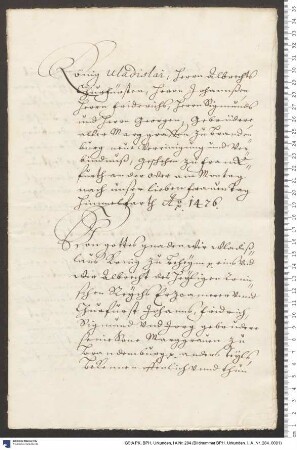 König Uladislai, Herrn Albrechts
Churfürsten, Herrn Johannsen
Herrn Friderichs, Herrn Sigmunds
und Herrn Georgen, Gebrüdere
aller Marggraffen zu Branden
burg neue Vereinigung und Ver
bündnuß, geschehen zu Franck
furth an der oder am Montag
nach unser lieben frauen tag
himmelfarth Ao. 1476.
Von gottes gnaden wir Wladiß
laus König zu Beheym eins und
Wir Albrecht des heyligen Römi
schen Reychs Erzcamerer und
Churfürst Johanns, Fridrich,
Sigmund und Jorg gebrüdere
Marggraven zu
Brandemburg anders teyls
Bekennen offenlich und thun